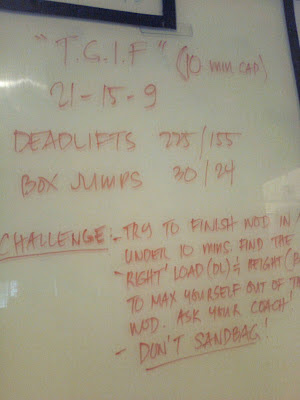 "T.G.I.F" (10 MIN. CAP)
21-15-9
DEADLIFTS 225/155
BOX JUMPS 30/24
CHALLENGE:- TRY TO FINISH WOD IN
UNDER 10 MINS. FIND THE
- 'RIGHT' LOAD (DL) & HEIGHT
TO MAX YOURSELF OUT OF
WOD. ASK YOUR COACH!
- DON'T SANDBAG!